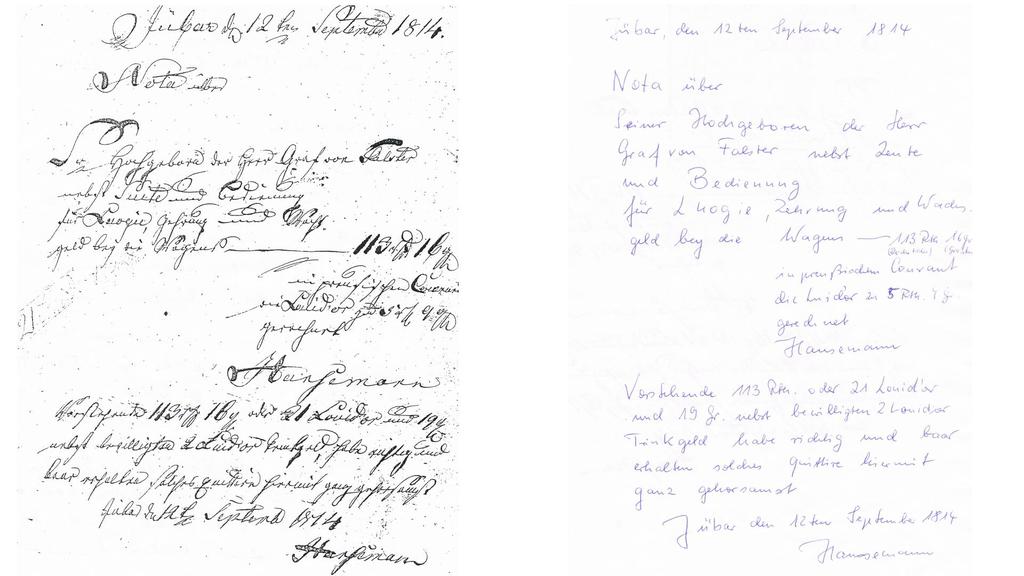 Jübar d 12ten September 1814.
Nota über
Sr Hochgeboren der Herr Graf von Falster
nebst Suite und Bedienung
für Loogie, Zehrung und Wach
geld bey die Wagens 113 rth 16 g
in preussischen Courant
die Louidor zu 5 rth 4 g
gerechnet
Hansemann
Vorstehende 113 rth 16 g oder 21 Louidor und 19 g
nebst bewilligten 2 Louidor Trinkgeld, habe richtig und
baar erhalten solches quittire hiermit ganz gehorsamst
Jübar den 12t September 1814
Hansemann
Jübar, den 12ten September 1814
Nota über
Seiner Hochgeboren der Herr
Graf von Falster nebst Leute
und Bedienung
für Lhogie, Zehrung und Wachs
geld bey die Wagens — 113 Rth. 16 gr
in preußischem Courant
die Luidor zu 5 Rth. 4 g
gerechnet
Hansemann
Vorstehende 113 Rth. oder 21 Louid'or
und 19 Gr. nebst bewilligten 2 Louidor
Trinkgeld habe richtig und baar
erhalten solches quittire hiermit
ganz gehorsamst
Jübar den 12ten September 1814
Hansemann